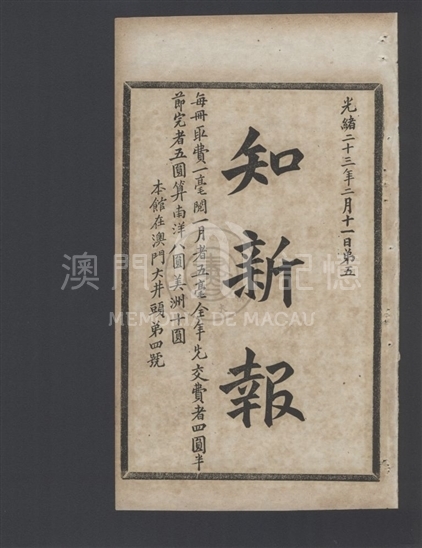 光緒二十三年二月十一日第五
知新報
每冊取費一毫閱一月者五毫全年先交費者四圓半
節完者五圓算南洋八圓美洲十圓
本館在澳門大井頭第四號
澳門記憶
MEMORIA DE MACAU